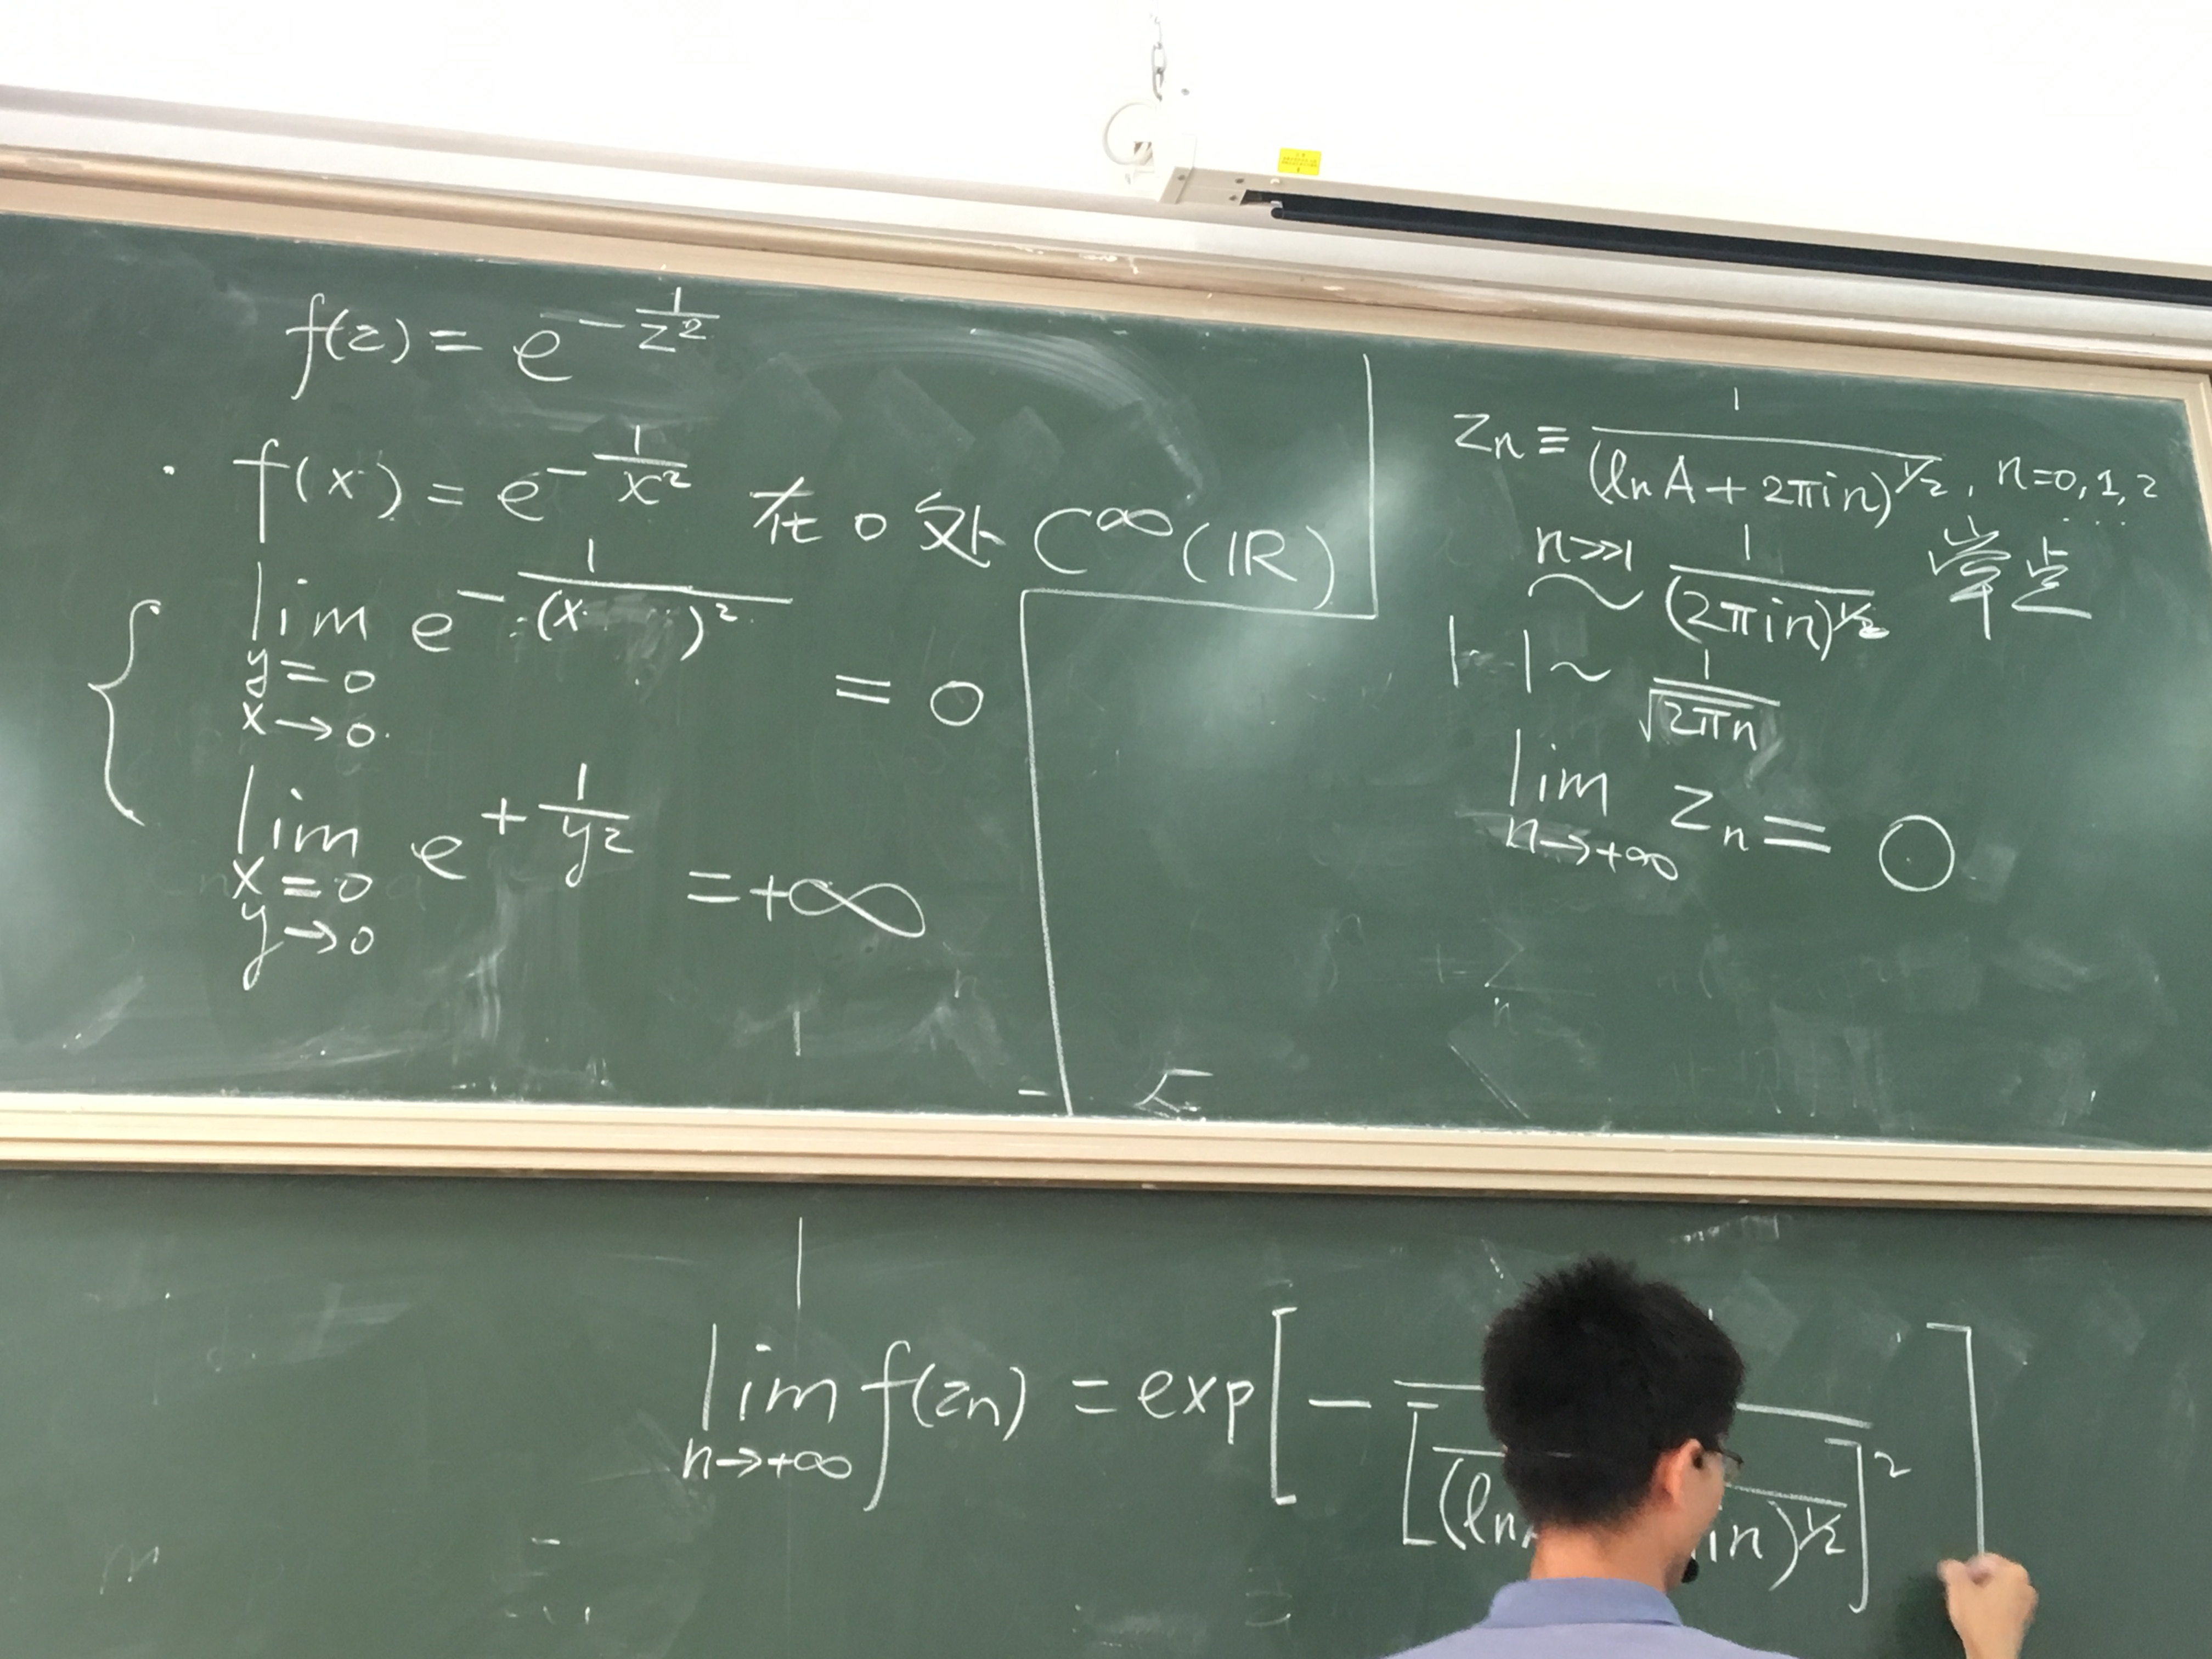 f(z) = e^{-\frac{1}{z^2}}
· f(x) = e^{-\frac{1}{x^2}} 在 0 处 C^∞(ℝ)
lim_{y=0, x→0} e^{-\frac{1}{(x )^2}} = 0
lim_{x=0, y→0} e^{+\frac{1}{y^2}} = +∞
z_n ≡ \frac{1}{(ln A + 2πin)^{1/2}}, n=0,1,2...
n≫1 ~ \frac{1}{(2πin)^{1/2}}
|-| ~ \frac{1}{\sqrt{2πn}}
lim_{n→+∞} z_n = 0
lim_{n→+∞} f(z_n) = exp[ - \frac{}{[\frac{}{(ln in)^{1/2}}]^2} ]